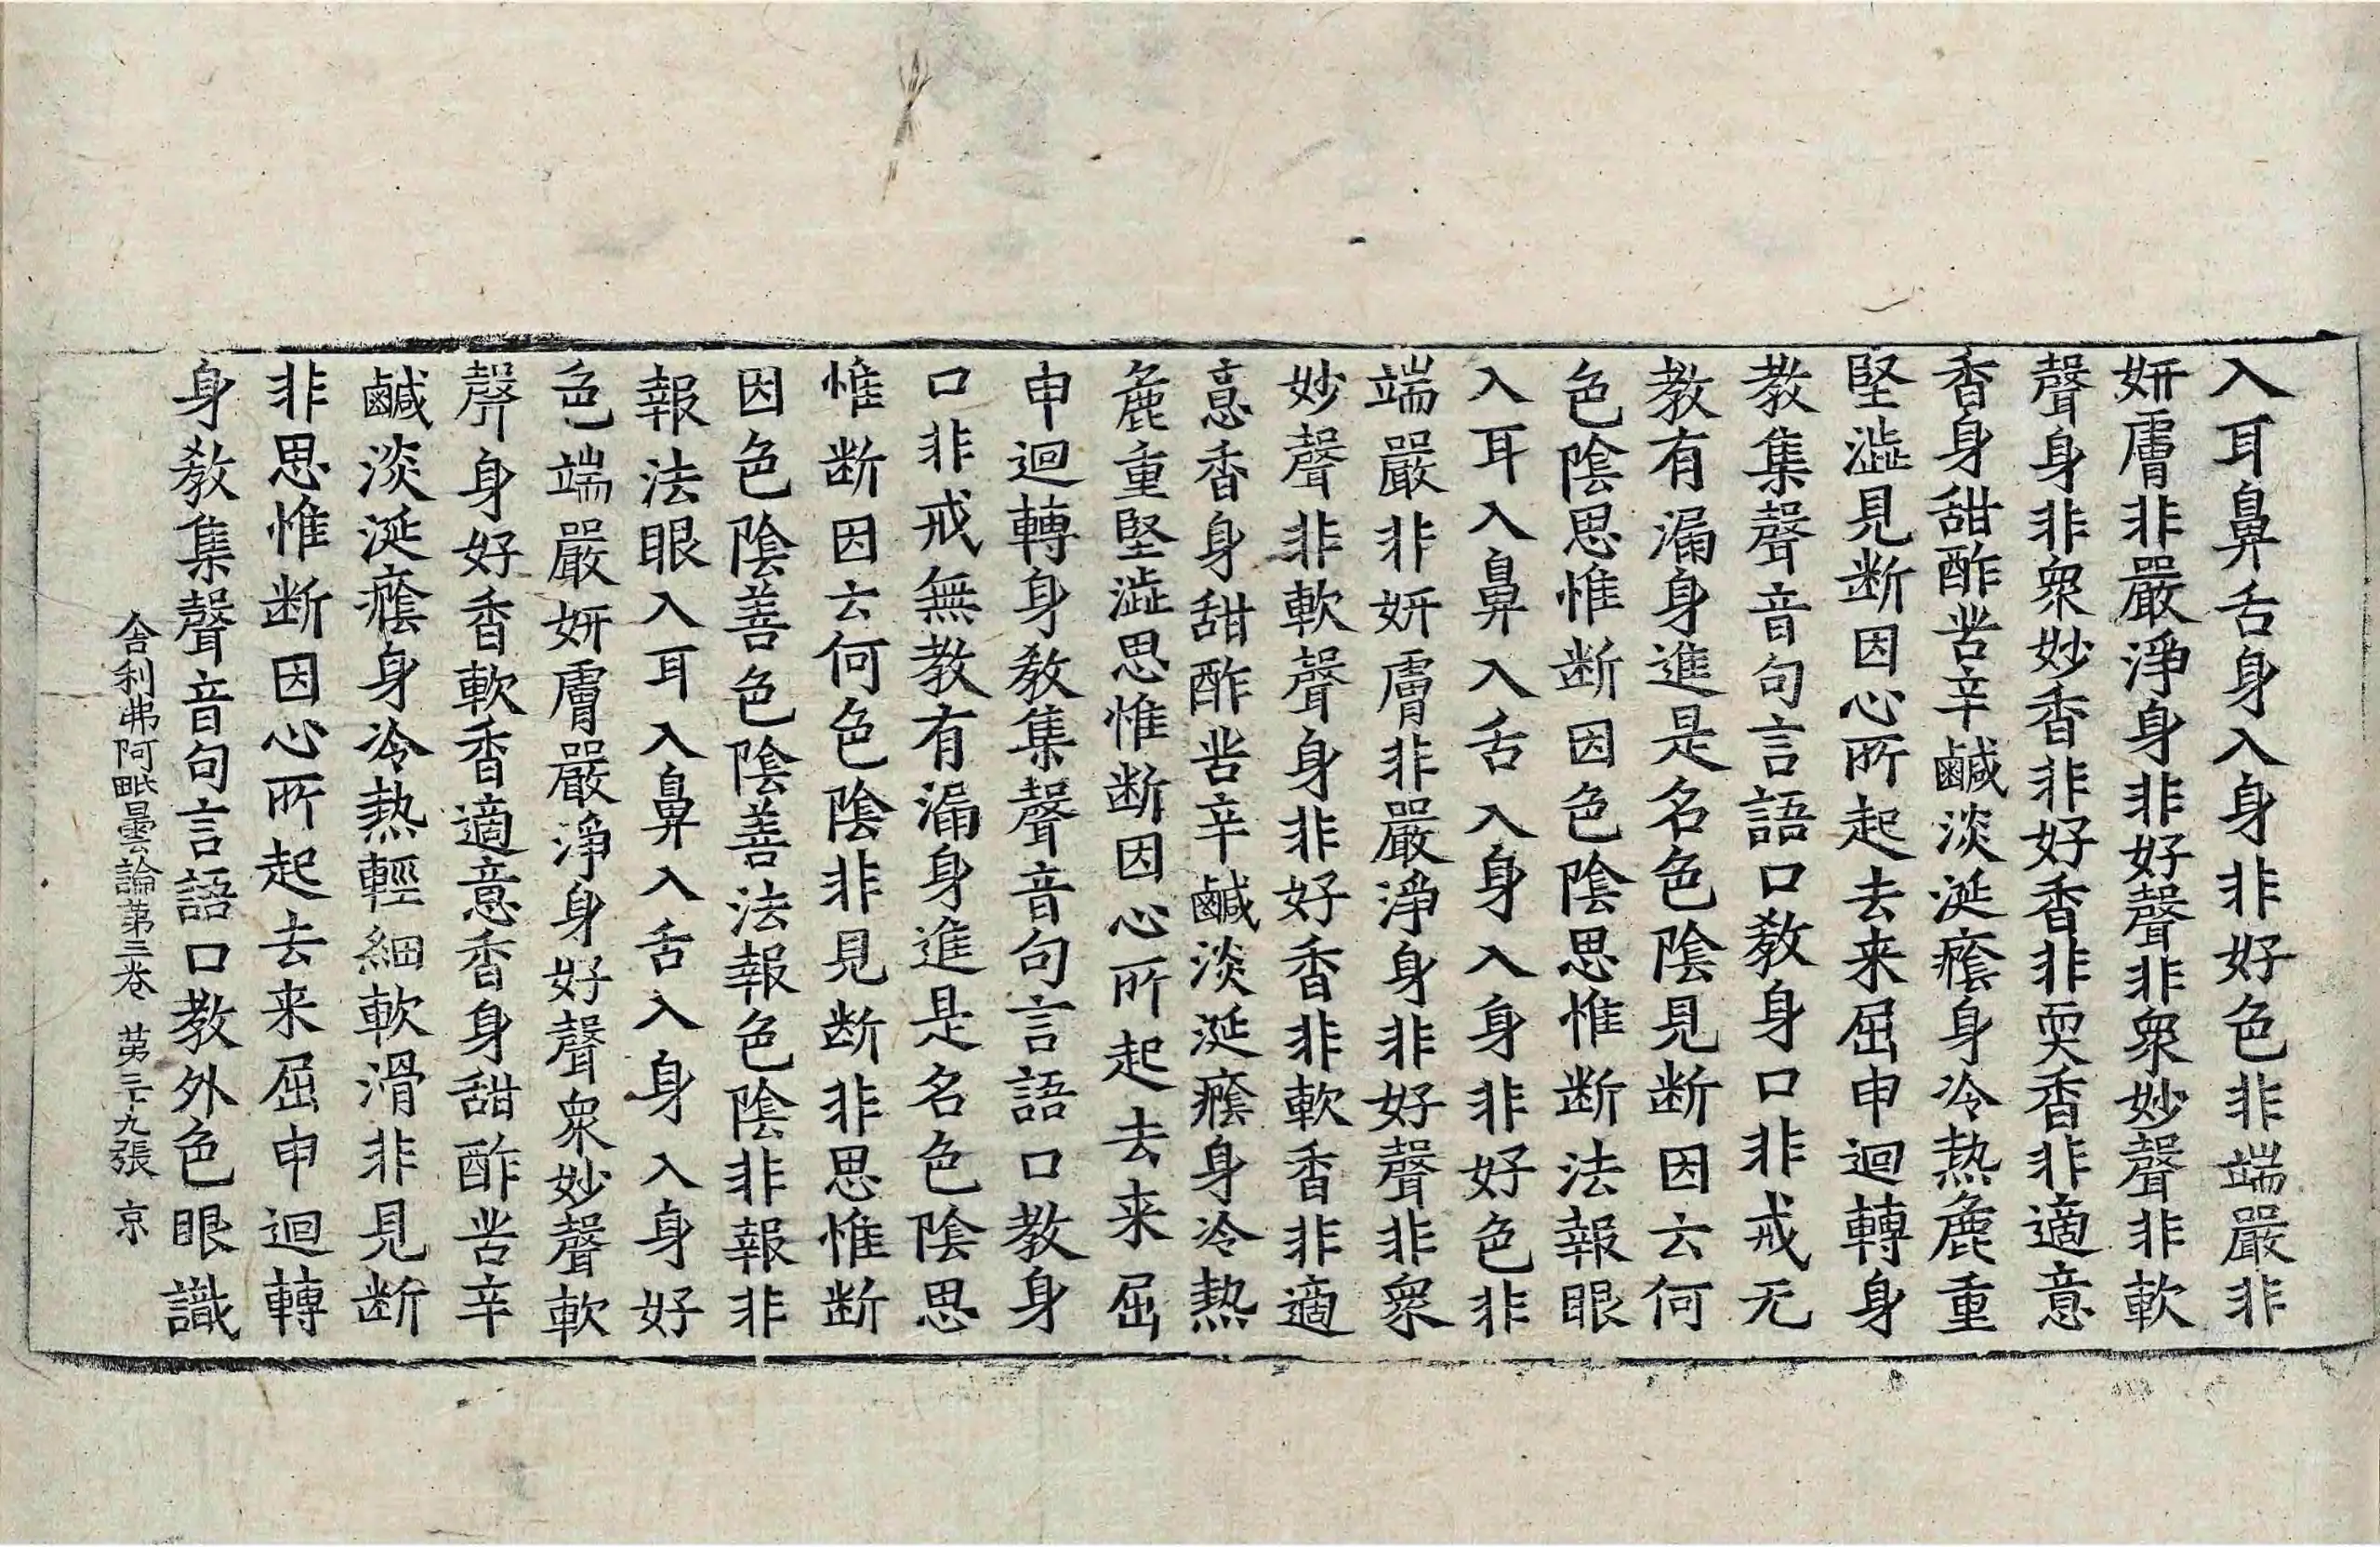 入耳鼻舌身入身非好色非端嚴非
妍膚非嚴淨身非好聲非衆妙聲非軟
聲身非衆妙香非好香非耎香非適意
香身甜酢苦辛鹹淡涎癊身冷熱麁重
堅澁見断因心所起去来屈申迴轉身
教集聲音句言語口教身口非戒无
教有漏身進是名色陰見断因云何
色陰思惟断因色陰思惟断法報眼
入耳入鼻入舌入身入身非好色非
端嚴非妍膚非嚴淨身非好聲非衆
妙聲非軟聲身非好香非軟香非適
意香身甜酢苦辛鹹淡涎癊身冷熱
麁重堅澁思惟断因心所起去来屈
申迴轉身教集聲音句言語口教身
口非戒無教有漏身進是名色陰思
惟断因云何色陰非見断非思惟断
因色陰善色陰善法報色陰非報非
報法眼入耳入鼻入舌入身入身好
色端嚴妍膚嚴淨身好聲衆妙聲軟
聲身好香軟香適意香身甜酢苦辛
鹹淡涎癊身冷熱輕細軟滑非見断
非思惟断因心所起去来屈申迴轉
身教集聲音句言語口教外色眼識
舍利弗阿毗曇論苐三卷 苐三十九張 京